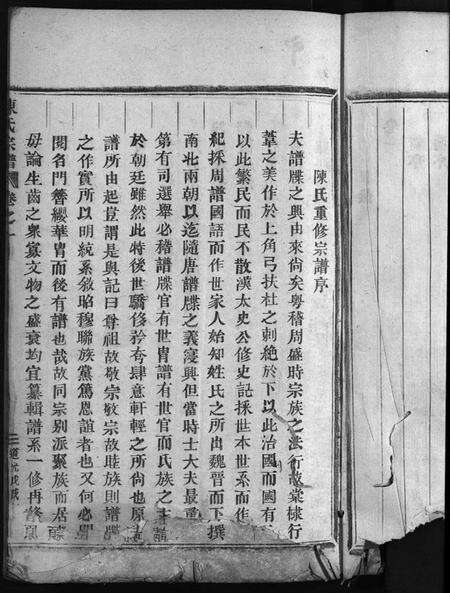 陳氏重修宗譜序
夫譜牒之興由來尙矣粤稽周盛時宗族之法行故棠棣行
葦之美作於上角弓扶杜之刺絶於下以此治國而國有
以此繁民而民不散漢太史公修史記採世本世系而作
紀採周譜國語而作世家人始知姓氏之所出魏晉而下撰
南北兩朝以迄隋唐譜牒之義寖興但當時士大夫最重
第有司選舉必稽譜牒官有世胄譜有世官而氏族之
於朝廷雖然此特後世驕侈矜夸肆意軒輊之所尙也原
譜所由起豈謂是與記曰尊祖故敬宗敬宗故睦族則譜牒
之作實所以明統系敘昭穆聯族黨篤恩誼者也又何必
閥名門簪纓華胄而後有譜也哉故同宗別派聚族而居
毋論生齒之衆寡文物之盛衰均宜纂輯譜系一修再修
陳氏宗譜
卷之一